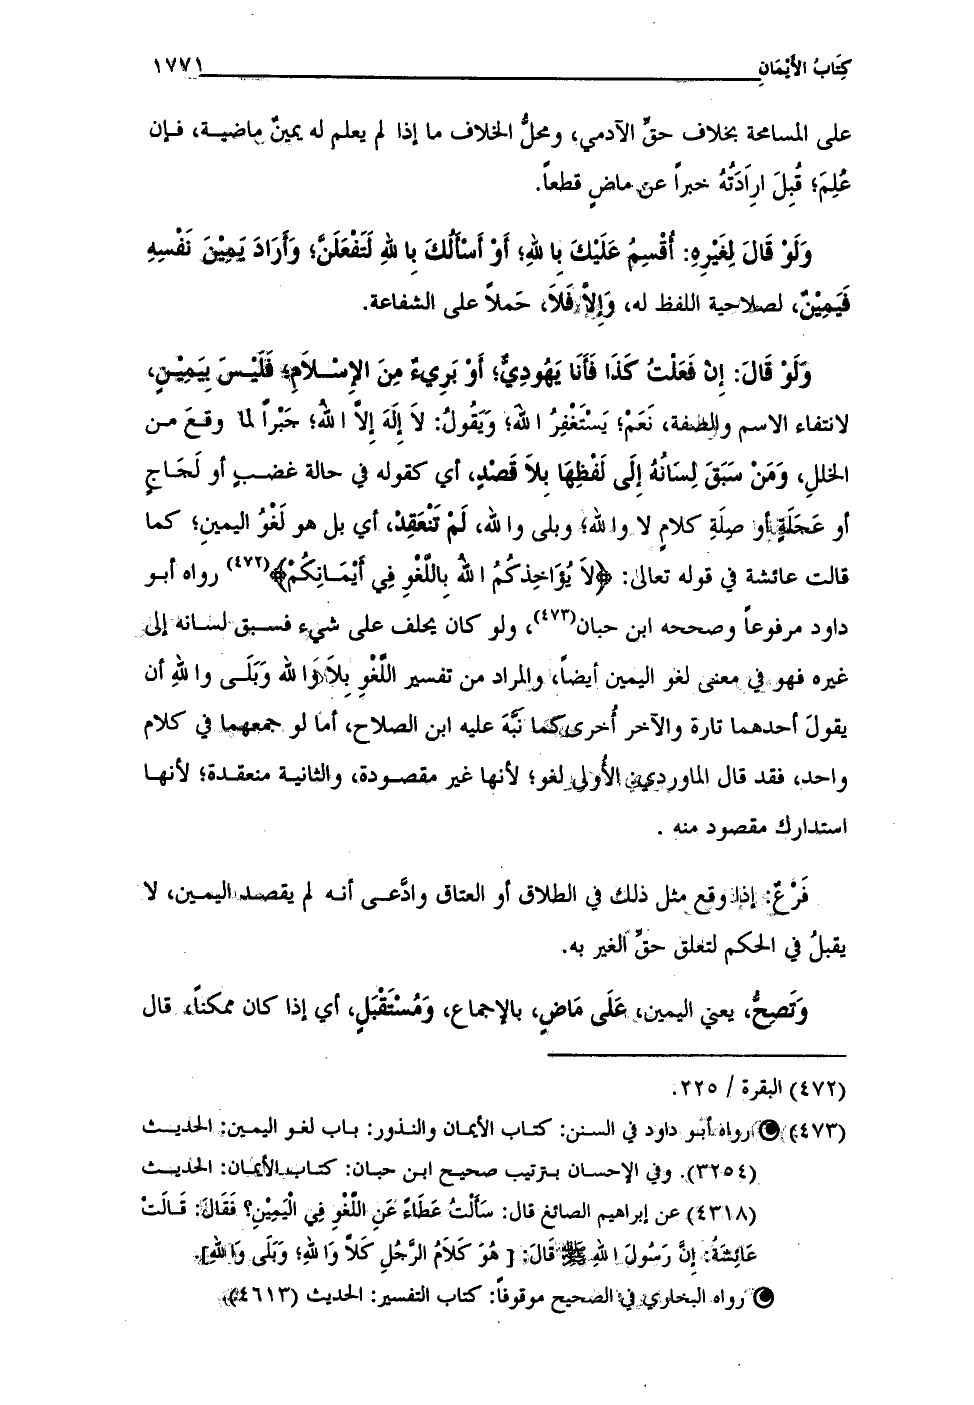 كِتَابُ الأَيْمَانِ ١٧٧١
على المسامحة بخلاف حقِّ الآدمي، ومحلُّ الخلاف ما إذا لم يعلم له يمينٌ ماضية، فإن
عُلِمَ؛ قُبِلَ ارِادَتُهُ خبراً عن ماضٍ قطعاً.
وَلَوْ قَالَ لِغَيْرِهِ: أُقْسِمُ عَلَيْكَ بِا للهِ؛ أَوْ أَسْأَلُكَ بِا للهِ لَتَفْعَلَنَّ؛ وَأَرَادَ يَمِيْنَ نَفْسِهِ
فَيَمِيْنٌ، لصلاحية اللفظ له، وَإِلاَّ فَلاَ، حَملاً على الشفاعة.
وَلَوْ قَالَ: إِنْ فَعَلْتُ كَذَا فَأَنَا يَهُودِيٌّ؛ أَوْ بَرِيءٌ مِنَ الإِسْلاَمِ؛ فَلَيْسَ بِيَمِيْنٍ،
لانتفاء الاسم والصفة، نَعَمْ؛ يَسْتَغْفِرُ اللهَ؛ وَيَقُولُ: لاَ إِلَهَ إِلاَّ اللهُ؛ جَبْراً لما وقعَ من
الخللِ، وَمَنْ سَبَقَ لِسَانُهُ إِلَى لَفْظِهَا بِلاَ قَصْدٍ، أي كقوله في حالة غضبٍ أو لَجَاجٍ
أو عَجَلَةٍ أو صِلَةِ كلامٍ لا واللهِ؛ وبلى واللهِ، لَمْ تَنْعَقِدْ، أي بل هو لَغْوُ اليمينِ؛ كما
قالت عائشة في قوله تعالى: ﴿لاَ يُؤَاخِذُكُمُ اللهُ بِاللَّغْوِ فِي أَيْمَانِكُمْ﴾(٤٧٢) رواه أبو
داود مرفوعاً وصححه ابن حبان(٤٧٣)، ولو كان يحلف على شيء فسبق لسانه إلى
غيره فهو في معنى لغو اليمين أيضاً، والمراد من تفسير اللَّغْوِ بِلاَ وَاللهِ وَبَلَى واللهِ أن
يقولَ أحدهما تارة والآخر أُخرى كما نَبَّهَ عليه ابن الصلاح، أما لو جمعهما في كلام
واحد، فقد قال الماوردي: الأُولى لغو؛ لأنها غير مقصودة، والثانية منعقدة؛ لأنها
استدارك مقصود منه .
فَرْعٌ: إذا وقع مثل ذلك في الطلاق أو العتاق وادَّعى أنه لم يقصد اليمين، لا
يقبلُ في الحكم لتعلق حقِّ الغير به.
وَتَصِحُّ، يعني اليمين، عَلَى مَاضٍ، بالإجماع، وَمُسْتَقْبَلٍ، أي إذا كان ممكناً، قال
(٤٧٢) البقرة / ٢٢٥.
(٤٧٣) رواه أبو داود في السنن: كتاب الأيمان والنذور: باب لغو اليمين: الحديث
(٣٢٥٤). وفي الإحسان بترتيب صحيح ابن حبان: كتاب الأيمان: الحديث
(٤٣١٨) عن إبراهيم الصائغ قال: سَأَلْتُ عَطَاءً عَنِ اللَّغْوِ فِي الْيَمِيْنِ؟ فَقَالَ: قَالَتْ
عَائِشَةُ: إِنَّ رَسُولَ اللهِ ﷺ قَالَ: [ هُوَ كَلاَمُ الرَّجُلِ كَلاَّ وَاللهِ؛ وَبَلَى وَاللهِ].
رواه البخاري في الصحيح موقوفاً: كتاب التفسير: الحديث (٤٦١٣)